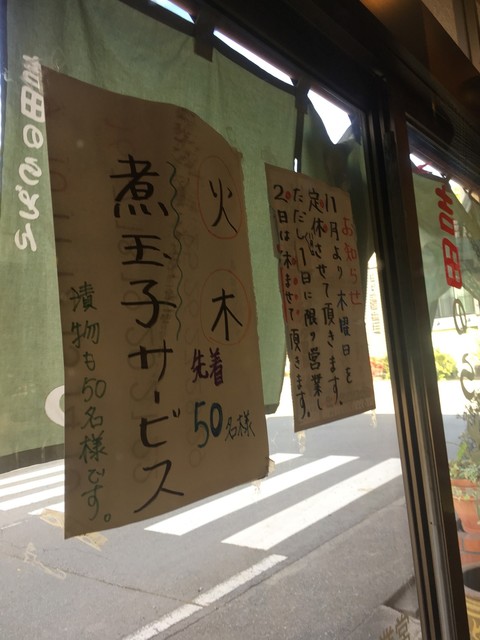 お知らせ
11月より木曜日を
定休にさせて頂きます。
ただし、1日に限り営業し
2日は休ませて頂きます。
火 木
先着
50名様
煮玉子サービス
漬物も50名様です。
吉田のうどん
吉田のう